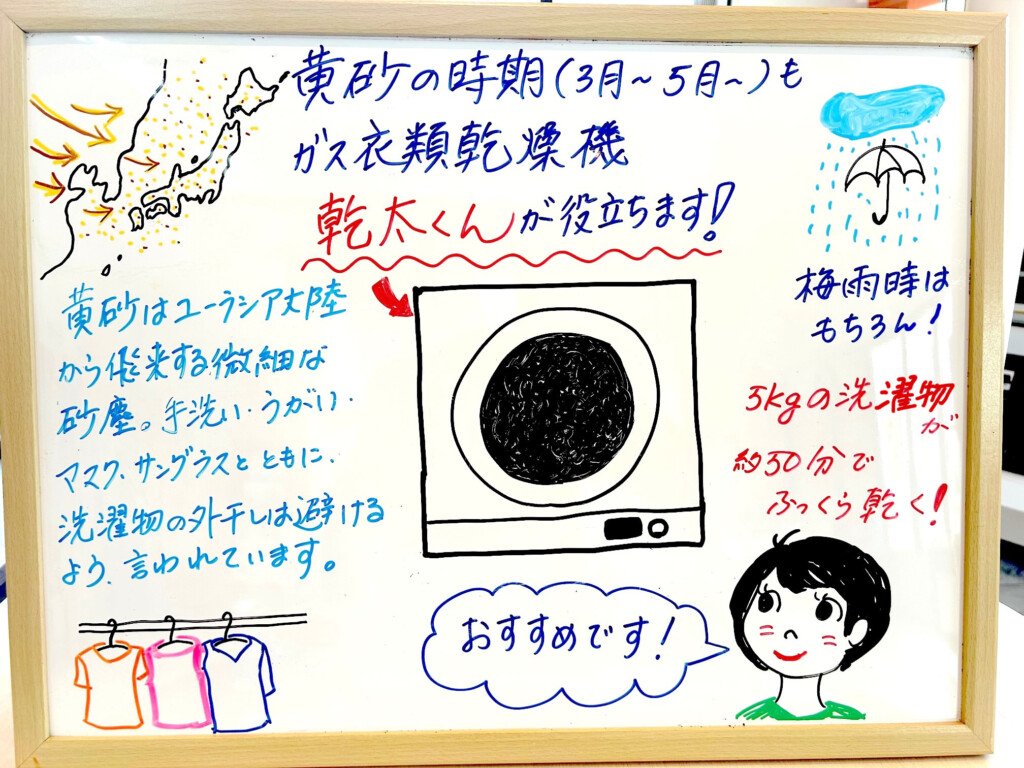 黄砂の時期(3月~5月~)も
ガス衣類乾燥機
乾太くんが役立ちます!
黄砂はユーラシア大陸
から飛来する微細な
砂塵。手洗い・うがい・
マスク、サングラスとともに、
洗濯物の外干しは避ける
よう、言われています。
梅雨時は
もちろん!
5kgの洗濯物が
約50分で
ふっくら乾く!
おすすめです!